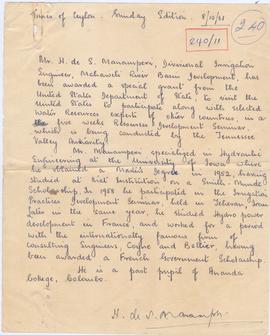 Times of Ceylon. Sunday Edition. 8/10/61
240
240/11
Mr. H. de S. Manamperi, Divisional Irrigation
Engineer, Mahaweli River Basin Development, has
been awarded a special grant from the
United States Department of State, to visit the
United States to participate along with selected
Water Resources experts of other countries, in a
five weeks Resources Development Seminar,
which is being conducted by the Tennessee
Valley Authority.
Mr. Manamperi specialized in Hydraulic
Engineering at the University of Iowa where
he obtained a Degree in 1952, having
studied at that Institution on a Smith-Mundt
Scholarship. In 1958 he participated in the Irrigation
Practices Development Seminar, held in Teheran, Iran
later in the same year, he studied Hydro power
development in France, and worked for a period
with the internationally famous firm of
Consulting Engineers, Coyne and Bellier, having
been awarded a French Government Scholarship.
He is a past pupil of Ananda
College, Colombo.
H. de S. Manamperi